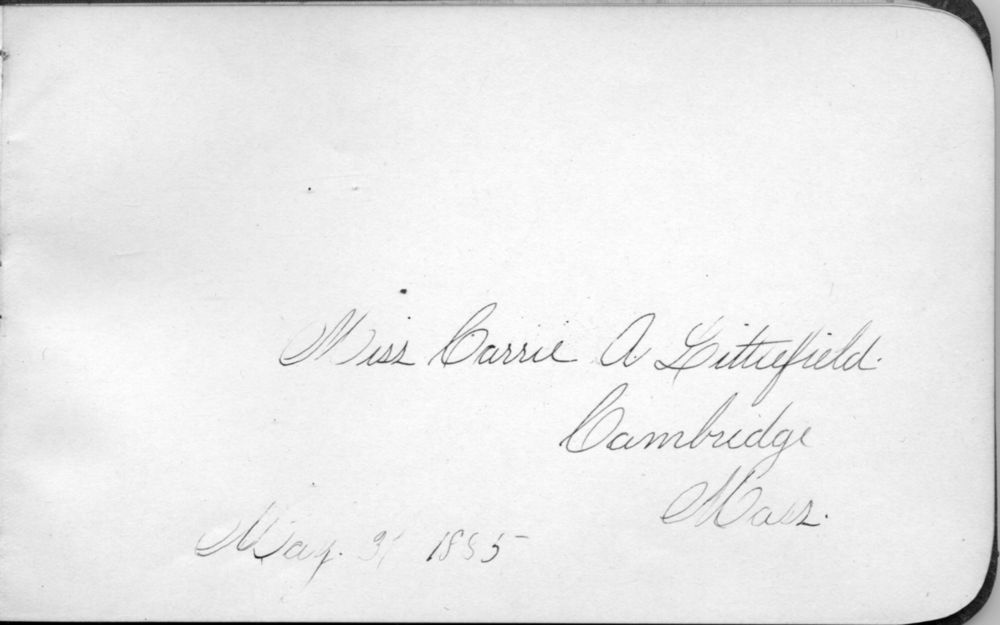 Miss Carrie A Littlefield.
Cambridge
Mass.
May. 31 1885